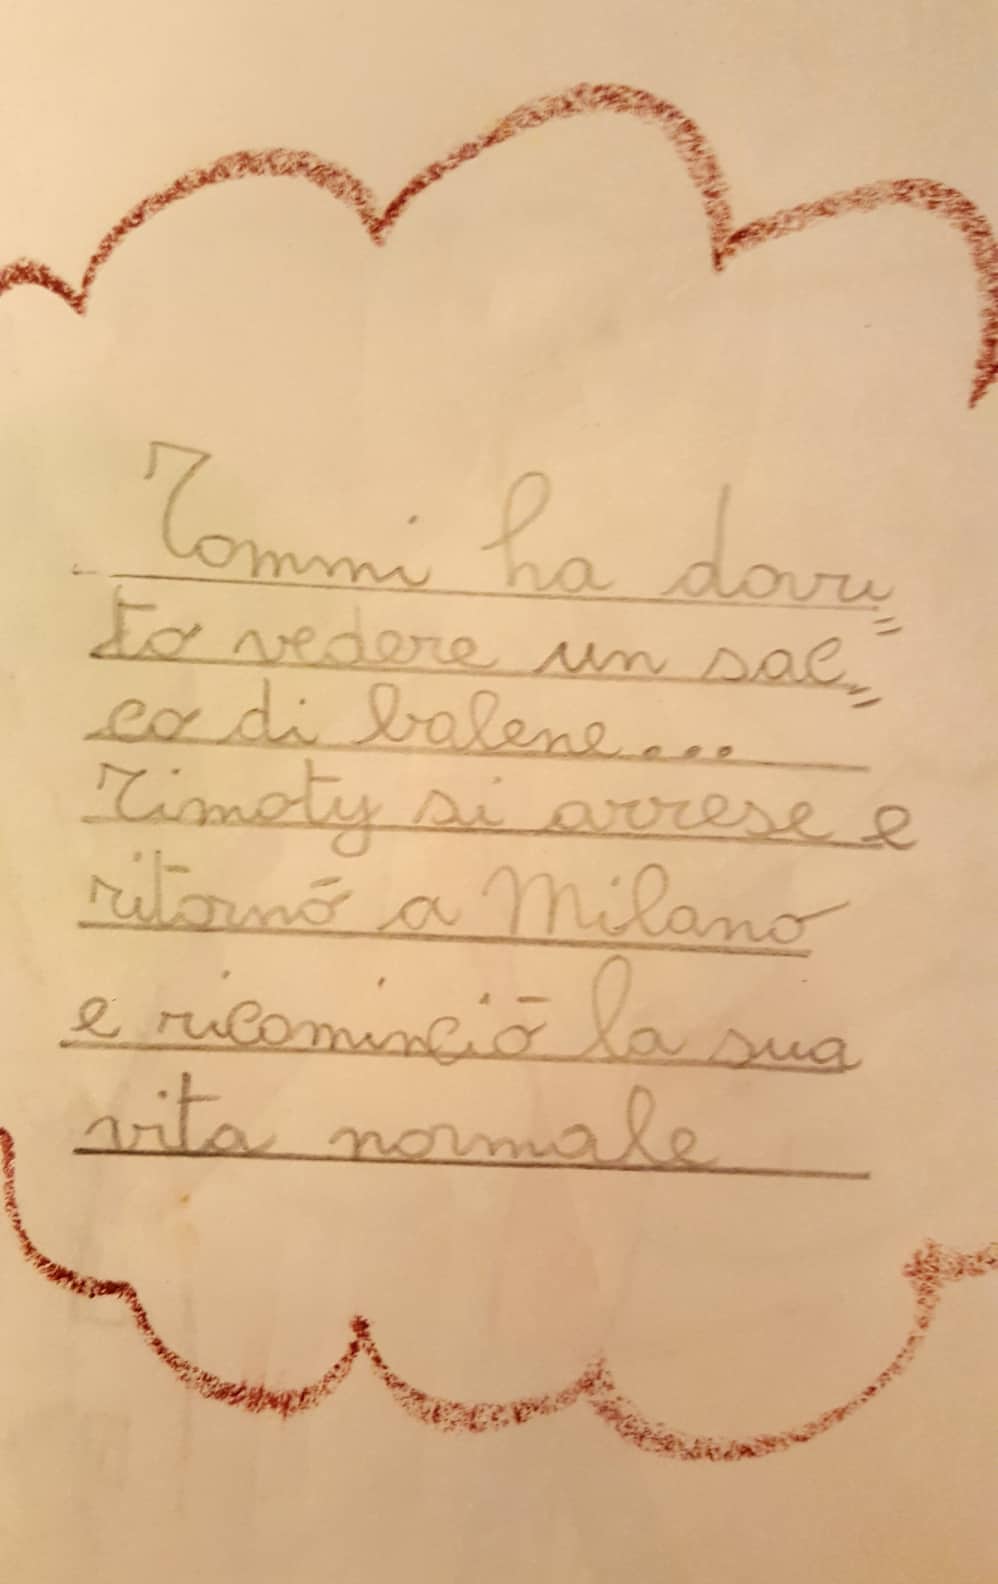 Tommi ha dovu=
to vedere un sac=
co di balene...
Timoty si arrese e
ritornò a Milano
e ricominciò la sua
vita normale